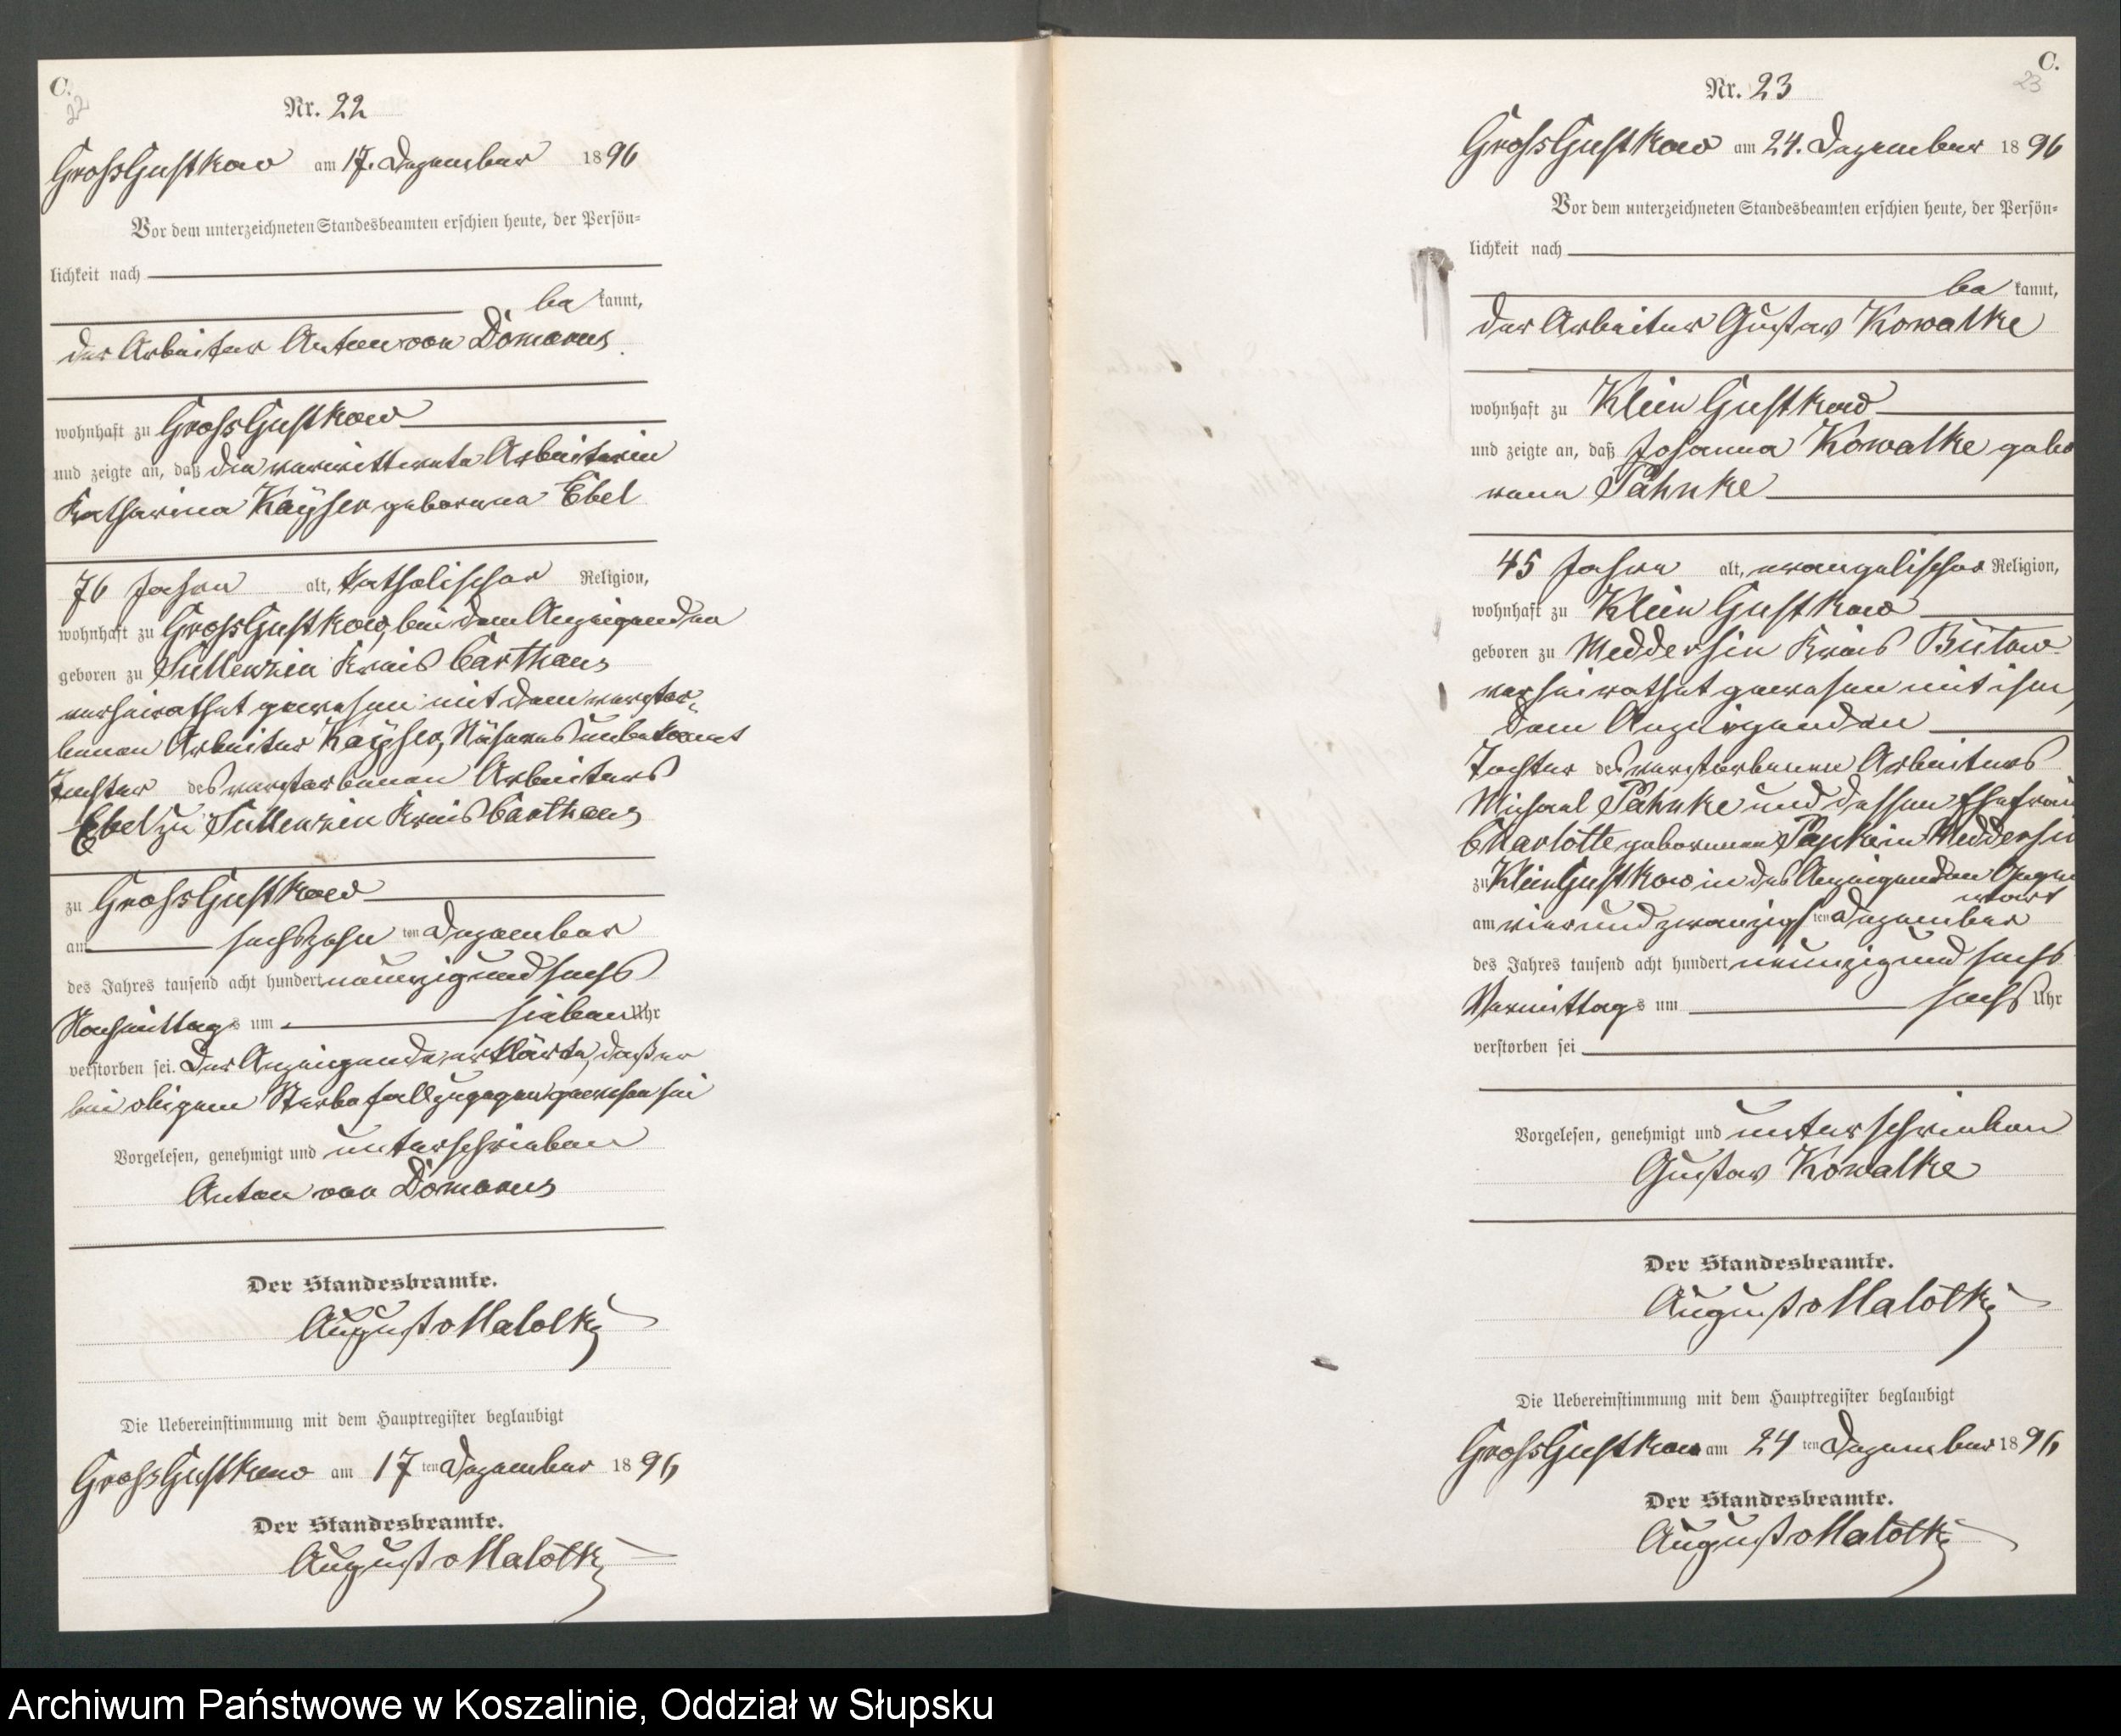 C.
22
Nr. 22
Gross Gustkow am 17. Dezember 1896
Vor dem unterzeichneten Standesbeamten erschien heute, der Persön-
lichkeit nach
be kannt,
der Arbeiter Anton von Domarus
wohnhaft zu Gross Gustkow
und zeigte an, daß die verwittwete Arbeiterin
Katharina Kayser geborene Ebel
76 Jahre alt, katholischer Religion,
wohnhaft zu Gross Gustkow, bei dem Anzeigenden
geboren zu Sullenzin Kreis Carthaus
verheirathet gewesen mit dem verstor-
benen Arbeiter Kayser, Näheres unbekannt
Tochter des verstorbenen Arbeiters
Ebel zu Sullenzin Kreis Carthaus
zu Gross Gustkow
am sechszehn ten Dezember
des Jahres tausend acht hundert neunzig und sechs
Nachmittags um sieben Uhr
verstorben sei. Der Anzeigende erklärte, daß er
bei obigem Sterbefall zugegen gewesen sei
Vorgelesen, genehmigt und unterschrieben
Anton von Domarus
Der Standesbeamte.
August v Malotky
Die Uebereinstimmung mit dem Hauptregister beglaubigt
Gross Gustkow am 17 ten Dezember 1896
Der Standesbeamte.
August v Malotky
C.
23
Nr. 23
Gross Gustkow am 24. Dezember 1896
Vor dem unterzeichneten Standesbeamten erschien heute, der Persön-
lichkeit nach
be kannt,
der Arbeiter Gustav Kowalke
wohnhaft zu Klein Gustkow
und zeigte an, daß Johanna Kowalke gebo
rene Pahnke
45 Jahre alt, evangelischer Religion,
wohnhaft zu Klein Gustkow
geboren zu Meddersin Kreis Bütow
verheirathet gewesen mit ihm,
dem Anzeigenden
Tochter des verstorbenen Arbeiters
Michael Pahnke und dessen Ehefrau
Charlotte geborenen in Meddersin
zu Klein Gustkow in des Anzeigenden Gegen
wart
am vierundzwanzigs ten Dezember
des Jahres tausend acht hundert neunzig und sechs
Vormittags um sechs Uhr
verstorben sei
Vorgelesen, genehmigt und unterschrieben
Gustav Kowalke
Der Standesbeamte.
August v Malotky
Die Uebereinstimmung mit dem Hauptregister beglaubigt
Gross Gustkow am 24 ten Dezember 1896
Der Standesbeamte.
August v Malotky
Archiwum Państwowe w Koszalinie, Oddział w Słupsku